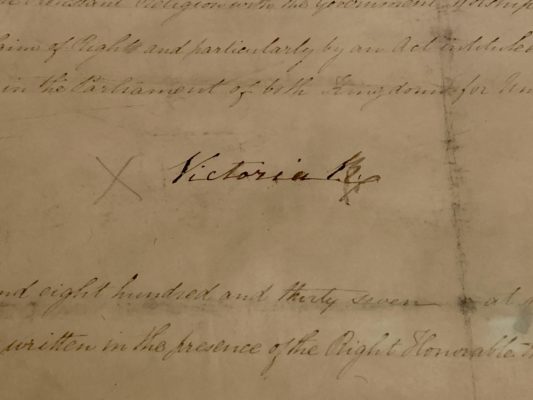 Protestant Religion with the Government Worship
Claim of Right and particularly by an Act intituled
in the Parliament of both Kingdoms for
X Victoria R.
and eight hundred and thirty seven at
written in the presence of the Right Honorable